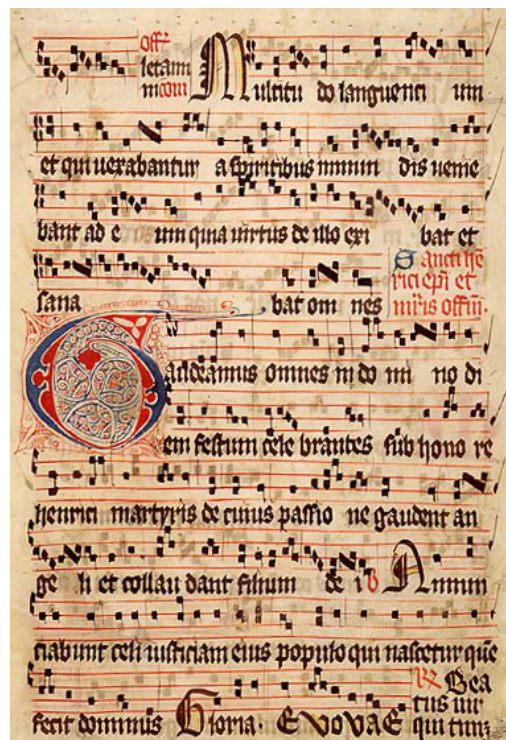 offr̄
letam
ni com Multitu do languenci um
et qui uexabantur a spiritibus inmun dis venie
bant ad e um quia uirtus de illo exi bat et
sana bat om nes
Sancti he
rici epi et
mr̄is offm̄.
Gaudeamus omnes in do mi no di
em festum cele brantes sub hono re
henrici martyris de cuius passio ne gaudent an
ge li et collau dant filium de i V Annun
ciabunt celi iusticiam eius populo qui nascetur quē
fecit dominus Gloria. EVOVAE
R Bea
tus uir
qui tim;